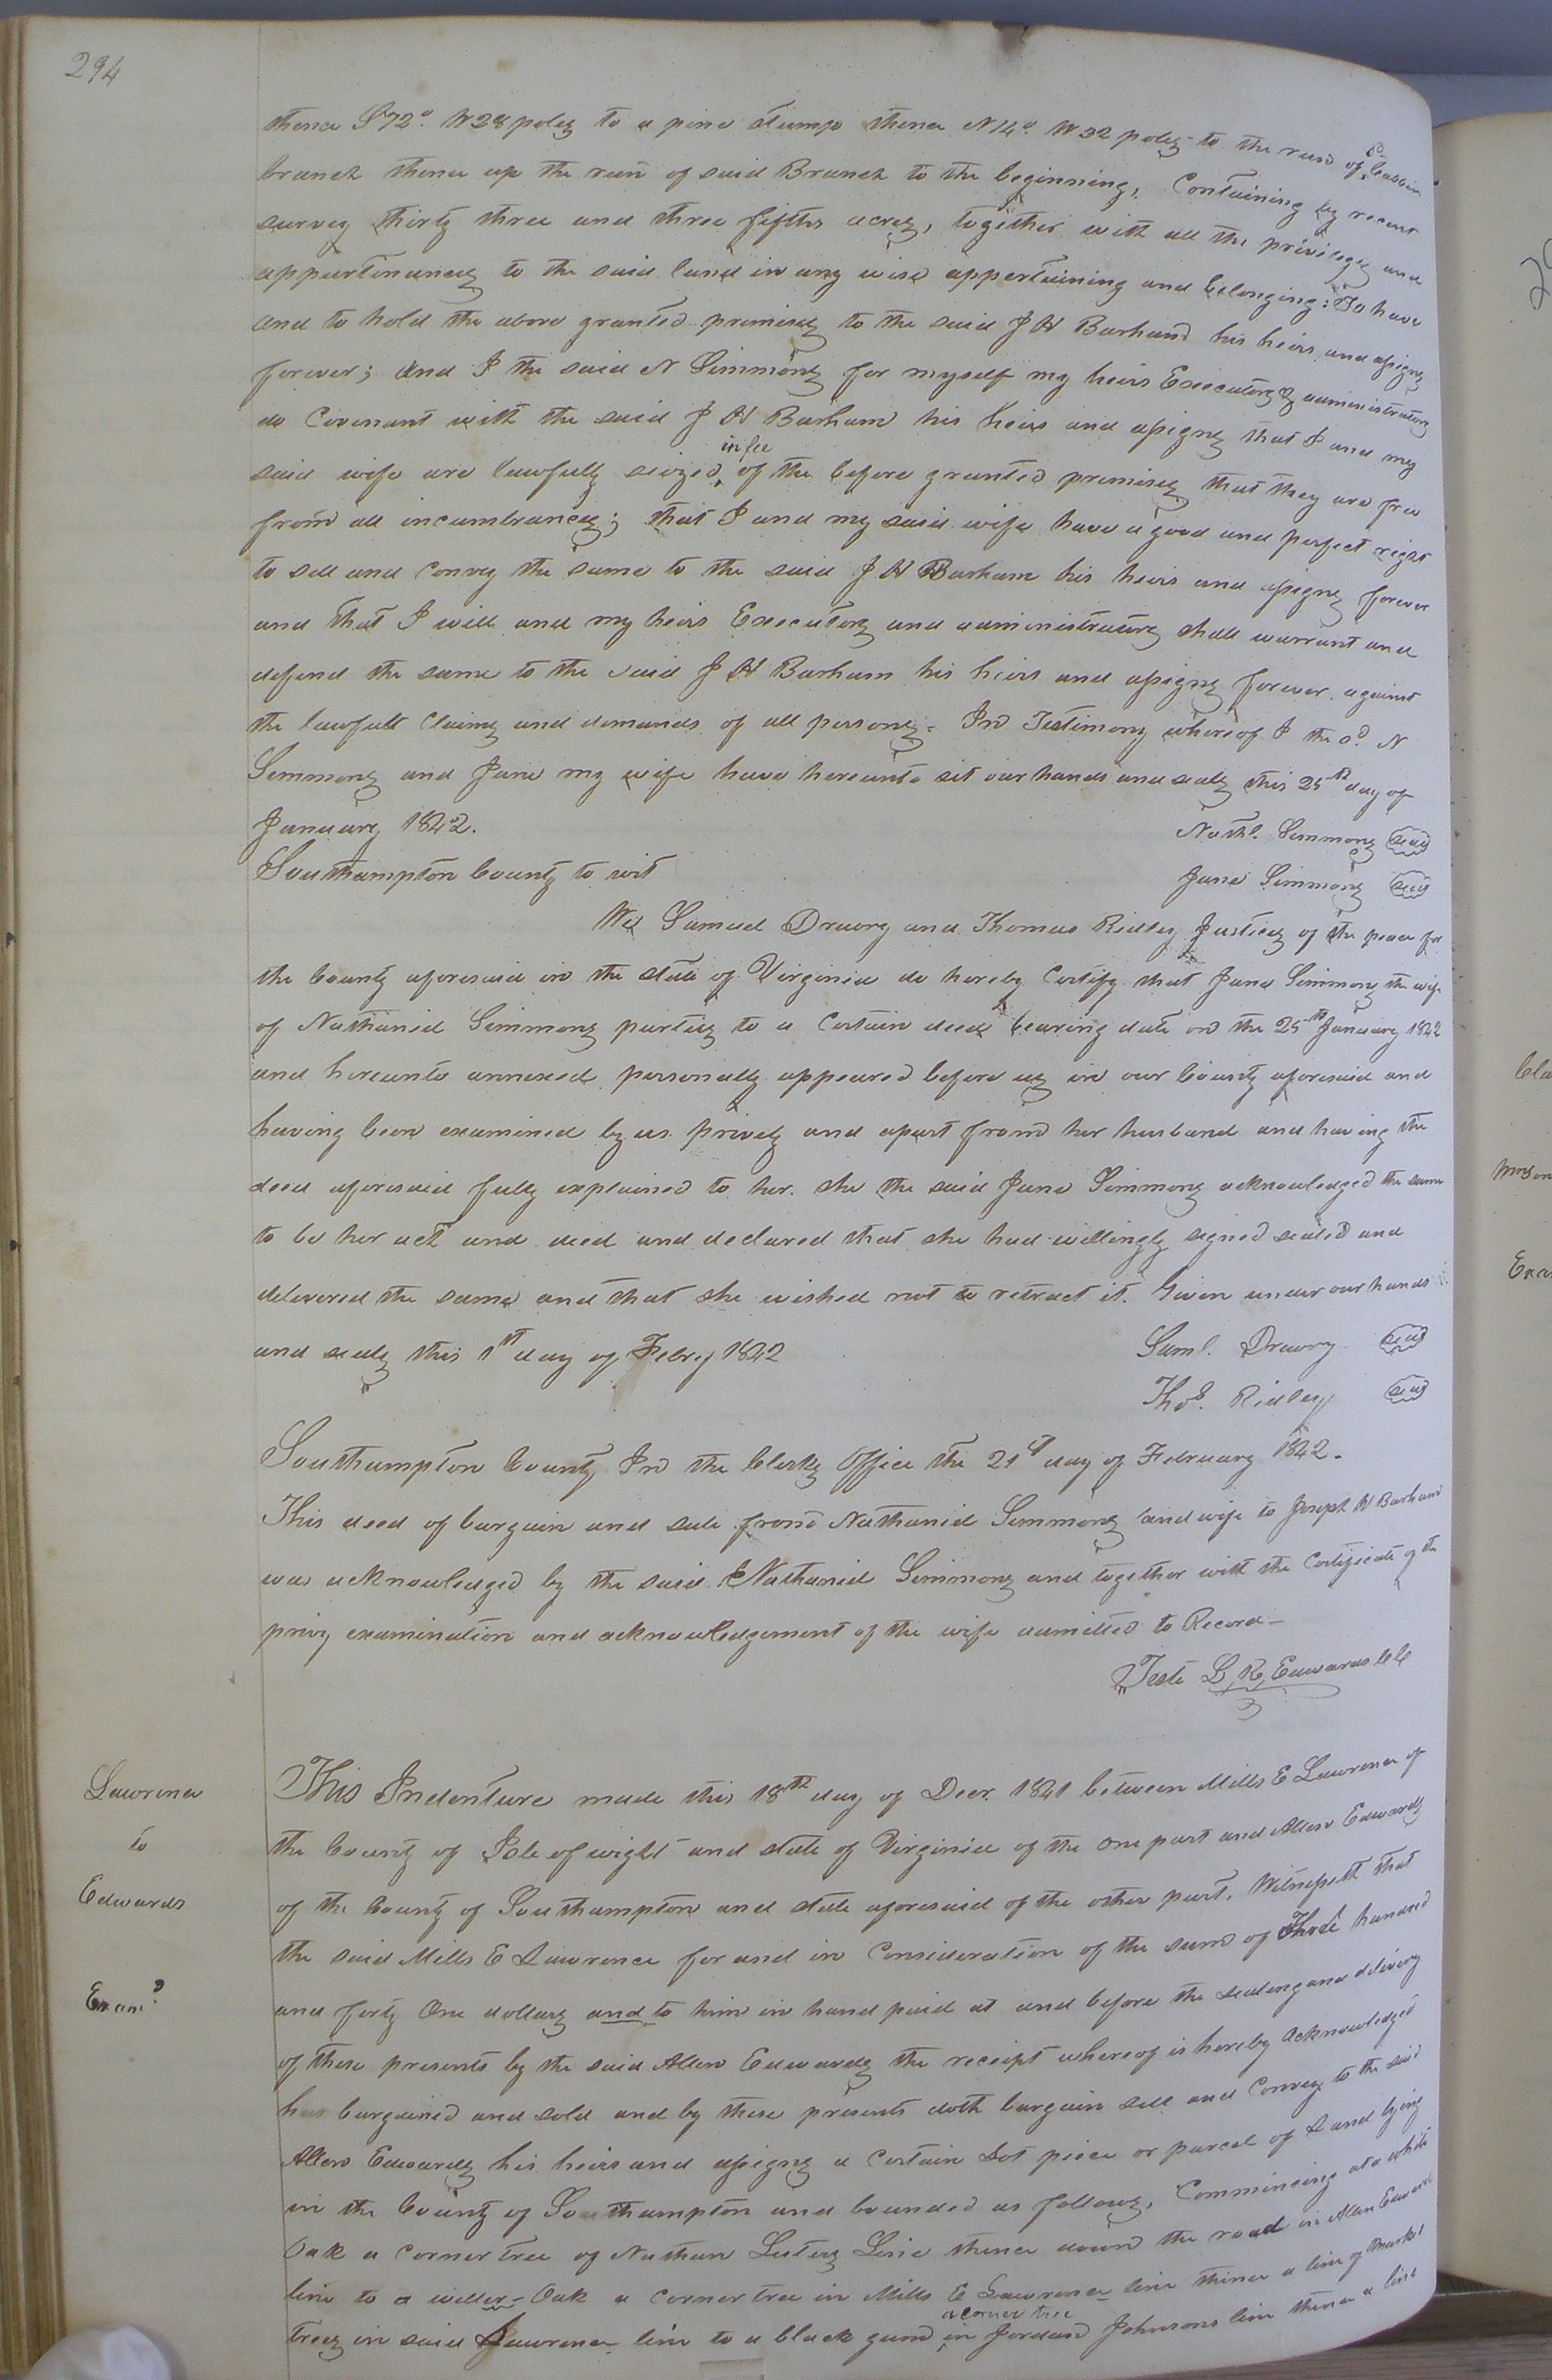 294
thence S 72° W 28 poles to a pine stump thence N 14° W 32 poles to the run of sd Cabbin
branch thence up the run of said Branch to the beginning, Containing by recent
survey thirty three and three fifths acres, together with all the privileges and
appurtenances to the said land in any wise appertaining and belonging: To have
and to hold the above granted premises to the said J H Barham his heirs and assigns
forever; And I the said N Simmons for myself my heirs Executors & administrators
do Covenant with the said J H Barham his heirs and assigns that I and my
said wife are lawfully seized in fee of the before granted premises that they are free
from all incumbrances; that I and my said wife have a good and perfect right
to sell and convey the same to the said J H Barham his heirs and assigns forever
and that I will and my heirs Executors and administrators shall warrant and
defend the same to the said J H Barham his heirs and assigns forever against
the lawfull claims and demands of all persons. In Testimony whereof I the sd. N
Simmons and Jane my wife have hereunto set our hands and seals this 25th day of
January 1842. Nathl. Simmons seal
Southampton County to wit Jane Simmons seal
We Samuel Drewry and Thomas Ridley Justices of the peace for
the County aforesaid in the state of Virginia do hereby Certify that Jane Simmons the wife
of Nathaniel Simmons parties to a Certain deed bearing date on the 25th January 1842
and hereunto annexed personally appeared before us in our County aforesaid and
having been examined by us privily and apart from her husband and having the
deed aforesaid fully explained to her. she the said Jane Simmons acknowledged the same
to be her act and deed and declared that she had willingly signed sealed and
delivered the same and that she wished not to retract it. Given under our hands
and seals this 1st day of Febry 1842 Saml. Drewry seal
Thos. Ridley seal
Southampton County In the Clerks Office the 21st day of February 1842.
This deed of bargain and sale from Nathaniel Simmons and wife to Joseph H Barham
was acknowledged by the said Nathaniel Simmons and together with the Certificate of the
privy examination and acknowledgement of the wife admitted to Record—
Teste L. R. Edwards CC
Lawrence
to
Edwards
Examd
This Indenture made this 18th day of Decr. 1841 between Mills E Lawrence of
the County of Isle of wight and state of Virginia of the one part and Allen Edwards
of the County of Southampton and state aforesaid of the other part, Witnesseth that
the said Mills E Lawrence for and in Consideration of the sum of Three hundred
and forty One dollars and to him in hand paid at and before the sealing and delivery
of these presents by the said Allen Edwards the receipt whereof is hereby acknowledged
has bargained and sold and by these presents doth bargain sell and Convey to the said
Allen Edwards his heirs and assigns a Certain Lot piece or parcel of Land lying
in the County of Southampton and bounded as follows, Commencing at a white
Oak a corner tree of Nathan Lesters Line thence down the road in Allen Edwards
line to a willer-Oak a corner tree in Mills E Lawrence line thence a line of markd
trees in said Lawrence line to a black gum a corner tree in Jordan Johnsons line thence a line